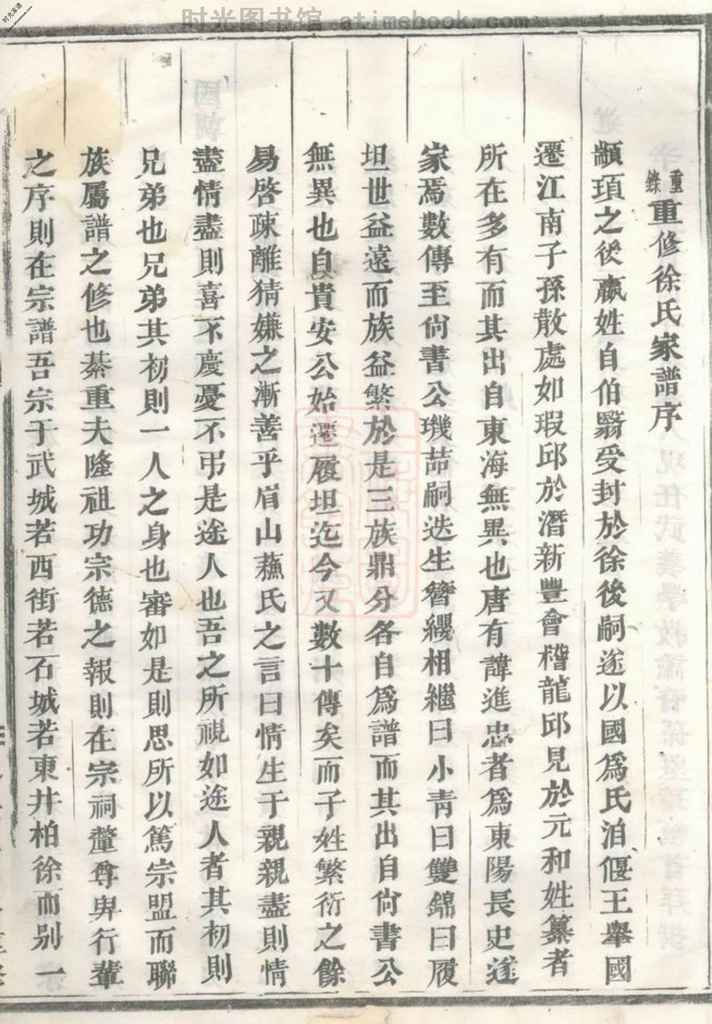 时光图书馆 atimebook.com
重修徐氏家譜序
顓頊之後嬴姓自伯翳受封於徐後嗣遂以國爲氏洎偃王舉國
遷江南子孫散處如瑕邱於潛新豐會稽龍邱見於元和姓纂者
所在多有而其出自東海無異也唐有諱進忠者爲東陽長史遂
家焉數傳至尙書公璣喆嗣迭生簪纓相繼曰小靑曰雙錦曰履
坦世益遠而族益繁於是三族鼎分各自爲譜而其出自尙書公
無異也自貴安公始遷履坦迄今又數十傳矣而子姓繁衍之餘
易啓疎離猜嫌之漸善乎眉山蘓氏之言曰情生于親親盡則情
盡情盡則喜不慶憂不弔是途人也吾之所視如途人者其初則
兄弟也兄弟其初則一人之身也審如是則思所以篤宗盟而聯
族屬譜之修也綦重夫隆祖功宗德之報則在宗祠釐尊卑行輩
之序則在宗譜吾宗于武城若西街若石城若東井柏徐而别一